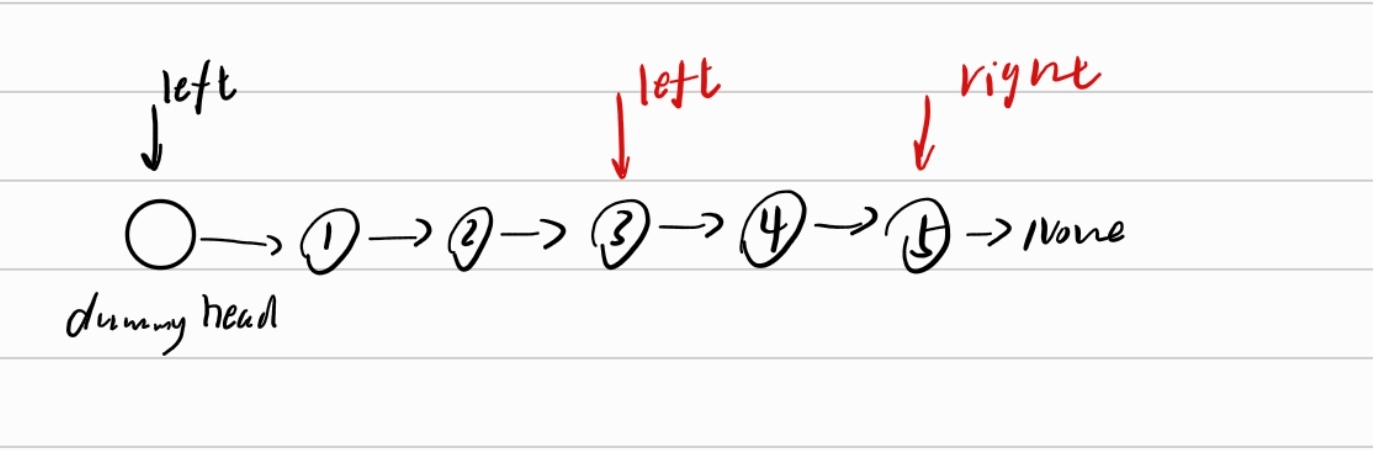 left left right
○ → 1 → 2 → 3 → 4 → 5 → None
dummy head